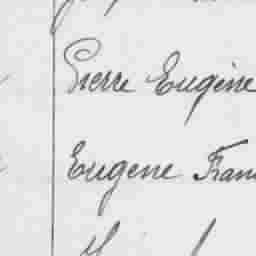 Pierre Eugène
Eugene Fran